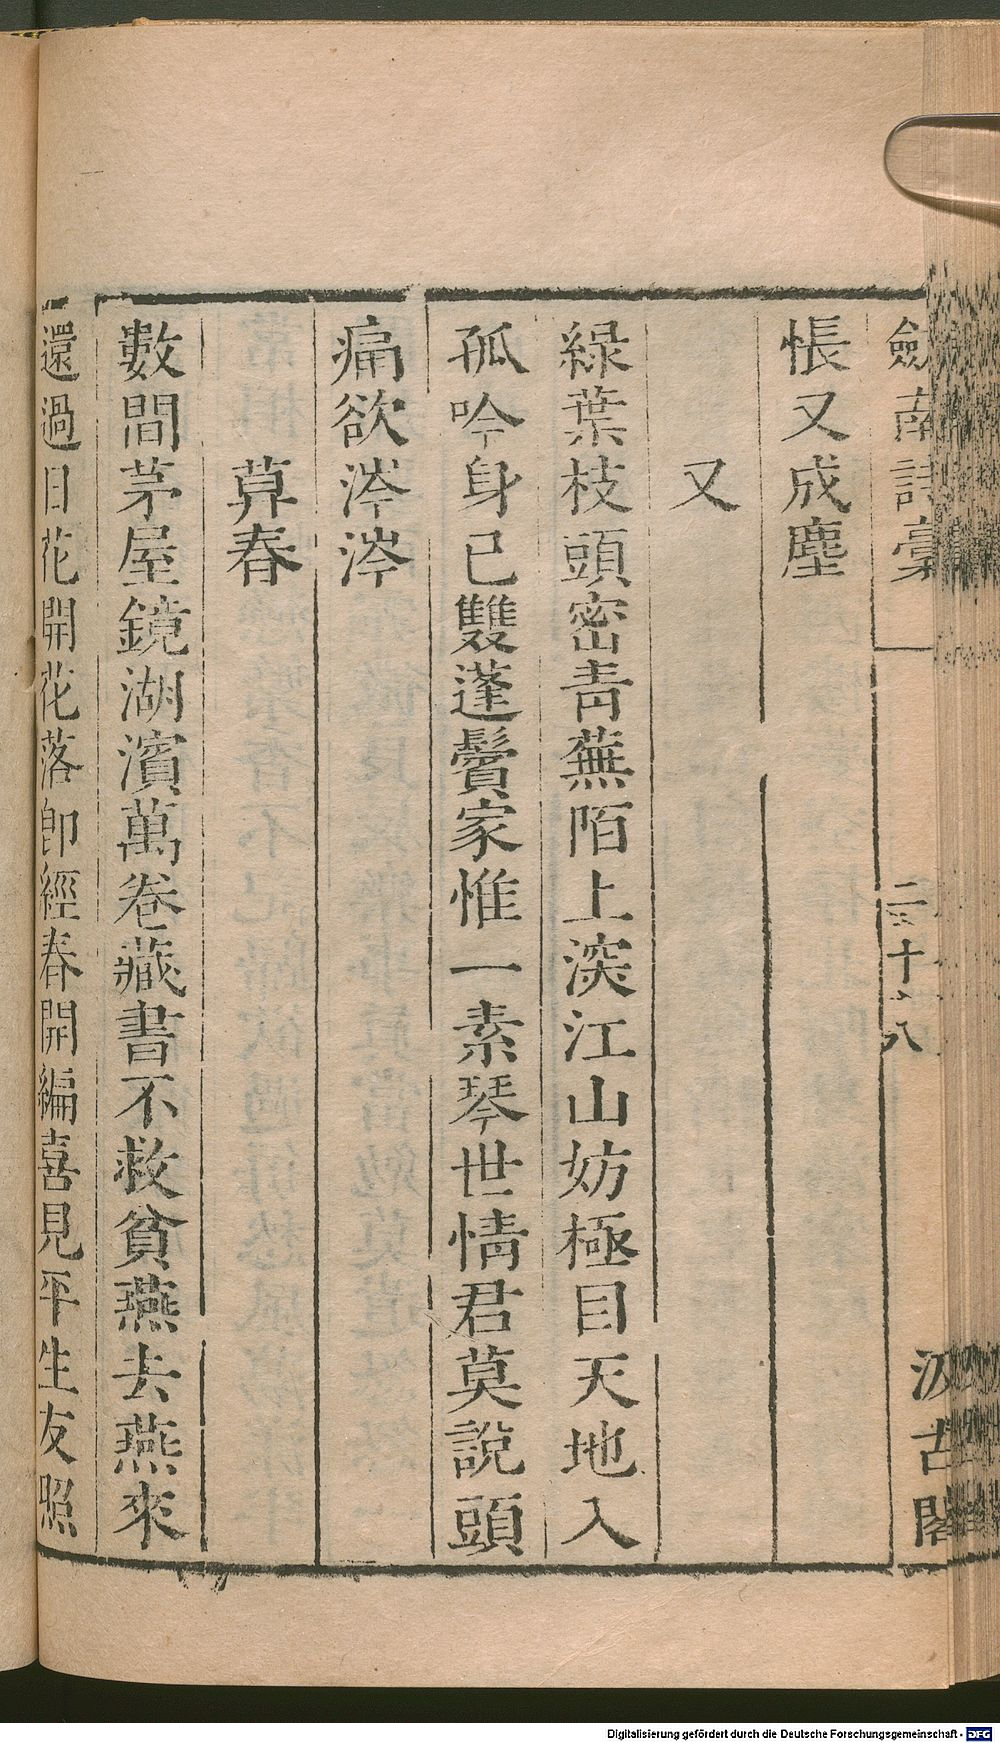 劍南詩稾
二十八
汲古閣
悵又成塵
又
綠葉枝頭密青蕪陌上深江山妨極目天地入
孤吟身已雙蓬鬢家惟一素琴世情君莫說頭
痛欲涔涔
莫春
數間茅屋鏡湖濱萬卷藏書不救貧燕去燕來
還過日花開花落卽經春開編喜見平生友照
Digitalisierung gefördert durch die Deutsche Forschungsgemeinschaft - DFG